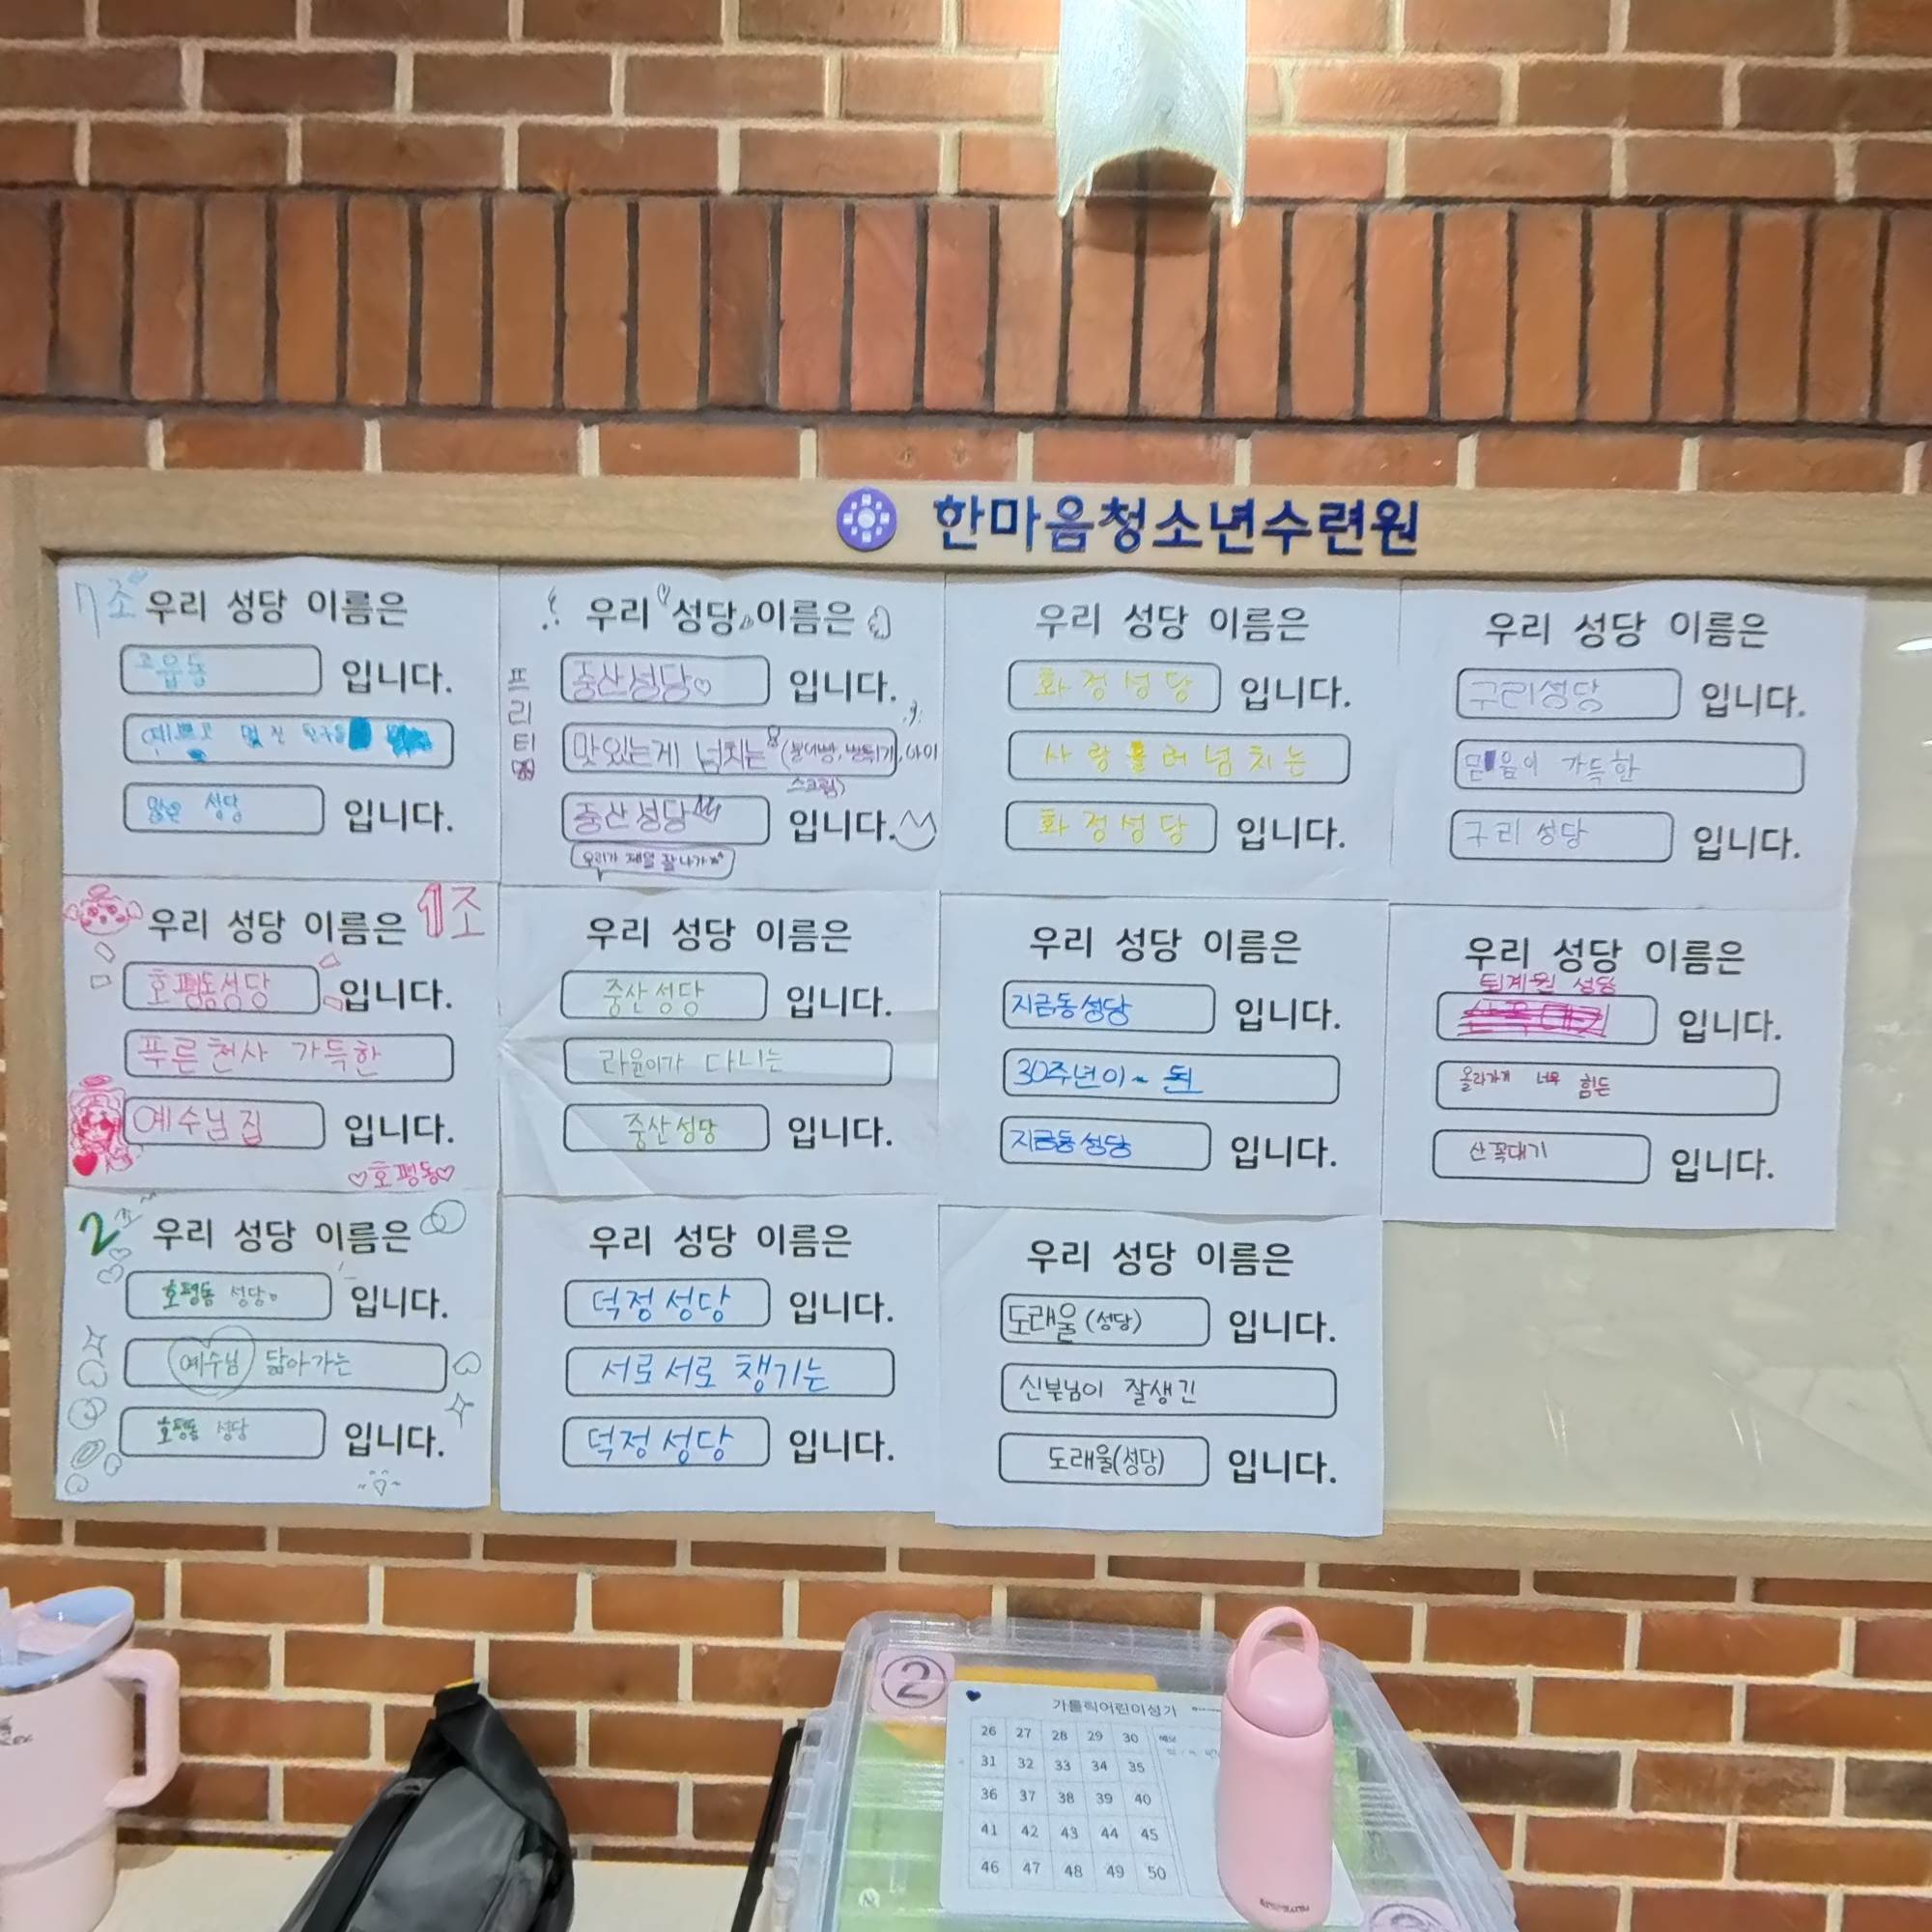 한마음청소년수련원
7조 우리 성당 이름은
입니다.
예쁘고 멋진 친구들
많은 성당 입니다.
우리 성당 이름은
프리티
중산성당♡ 입니다.
맛있는게 넘치는 (붕어빵, 뻥튀기, 아이
스크림)
중산성당 입니다.
우리가 제일 잘나가
우리 성당 이름은
화정성당 입니다.
사랑 흘러넘치는
화정성당 입니다.
우리 성당 이름은
구리성당 입니다.
믿음이 가득한
구리성당 입니다.
우리 성당 이름은 1조
호평동성당 입니다.
푸른천사 가득한
예수님집 입니다.
♡호평동♡
우리 성당 이름은
중산성당 입니다.
라윤이가 다니는
중산성당 입니다.
우리 성당 이름은
지금동성당 입니다.
30주년이~ 된
지금동성당 입니다.
우리 성당 이름은
퇴계원 성당
입니다.
올라가기 너무 힘든
산꼭대기 입니다.
2조 우리 성당 이름은
호평동 성당 입니다.
예수님 닮아가는
호평동 성당 입니다.
우리 성당 이름은
덕정성당 입니다.
서로서로 챙기는
덕정성당 입니다.
우리 성당 이름은
도래울(성당) 입니다.
신부님이 잘생긴
도래울(성당) 입니다.
②
가톨릭어린이성가
26 27 28 29 30
31 32 33 34 35
36 37 38 39 40
41 42 43 44 45
46 47 48 49 50